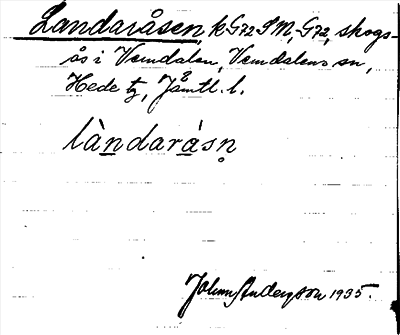 Landaråsen, k G72 SM,-G72, skogs-
ås i Vemdalen, Vemdalens sn,
Hede tg, Jämtl. l.
làndaråsn̥
John Andersson 1935.